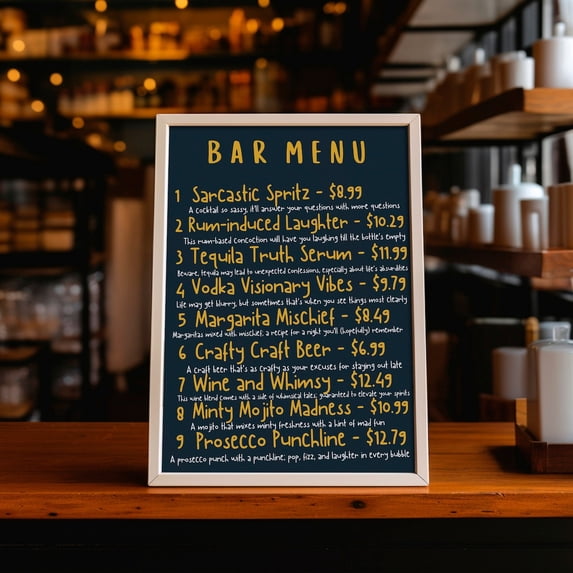 BAR MENU
1 Sarcastic Spritz - $8.99
A cocktail so sassy, it'll answer your questions with more questions
2 Rum-induced Laughter - $10.29
This rum-based concoction will have you laughing till the bottle's empty
3 Tequila Truth Serum - $11.99
Beware, tequila may lead to unexpected confessions, especially about life's absurdities
4 Vodka Visionary Vibes - $9.79
Life may get blurry, but sometimes that's when you see things most clearly
5 Margarita Mischief - $8.49
Margaritas mixed with mischief, a recipe for a night you'll (hopefully) remember
6 Crafty Craft Beer - $6.99
A craft beer that's as crafty as your excuses for staying out late
7 Wine and Whimsy - $12.49
This wine blend comes with a side of whimsical tales; guaranteed to elevate your spirits
8 Minty Mojito Madness - $10.99
A mojito that mixes minty freshness with a hint of mad fun
9 Prosecco Punchline - $12.79
A prosecco punch with a punchline; pop, fizz, and laughter in every bubble